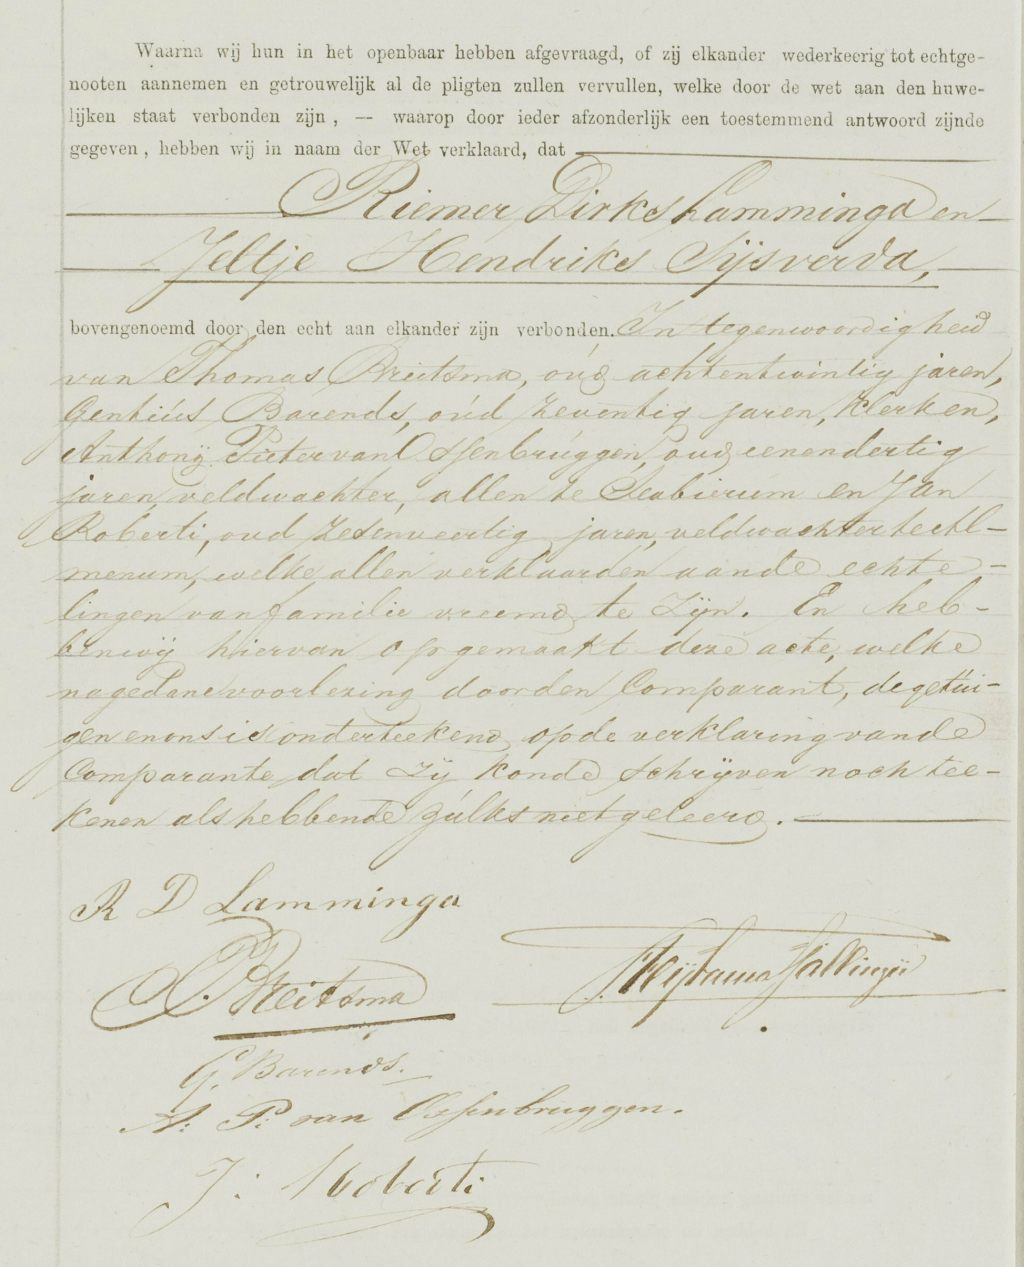 Waarna wij hun in het openbaar hebben afgevraagd, of zij elkander wederkeerig tot echtge-
nooten aannemen en getrouwelijk al de pligten zullen vervullen, welke door de wet aan den huwe-
lijken staat verbonden zijn, — waarop door ieder afzonderlijk een toestemmend antwoord zijnde
gegeven, hebben wij in naam der Wet verklaard, dat
Riemer Dirks Lamminga en
Jeltje Hendriks Sijsverda,
bovengenoemd door den echt aan elkander zijn verbonden. In tegenwoordigheid
van Thomas Breitsma, oud achtentwintig jaren,
Gentius Barends, oud zeventig jaren, klerken,
Anthony Pieter van Ossenbruggen, oud eenendertig
jaren, veldwachter, allen te Sexbierum en Jan
Roberti, oud zesenveertig jaren, veldwachter te Tl-
menum, welke allen verklaarden aan de echte-
lingen van familie vreemd te zijn. En heb-
ben wij hiervan opgemaakt deze acte, welke
na gedane voorlezing door den Comparant, de getui-
gen en ons is onderteekend, op de verklaring van de
Comparante dat zij konde schrijven noch tee-
kenen als hebbende zulks niet geleerd.
R D Lamminga
Breitsma
G. Barends.
A. P. van Ossenbruggen.
J. Roberti